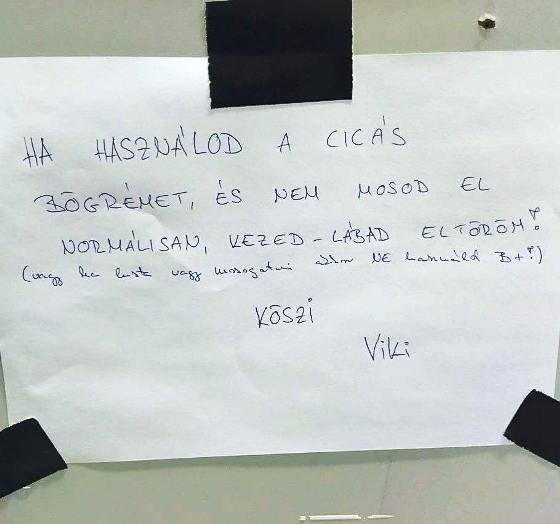 HA HASZNÁLOD A CICÁS
BÖGRÉMET, ÉS NEM MOSOD EL
NORMÁLISAN, KEZED-LÁBAD ELTÖRÖM!
(vagy ha lusta vagy mosogatni akkor NE használd B+!)
KÖSZI
Viki